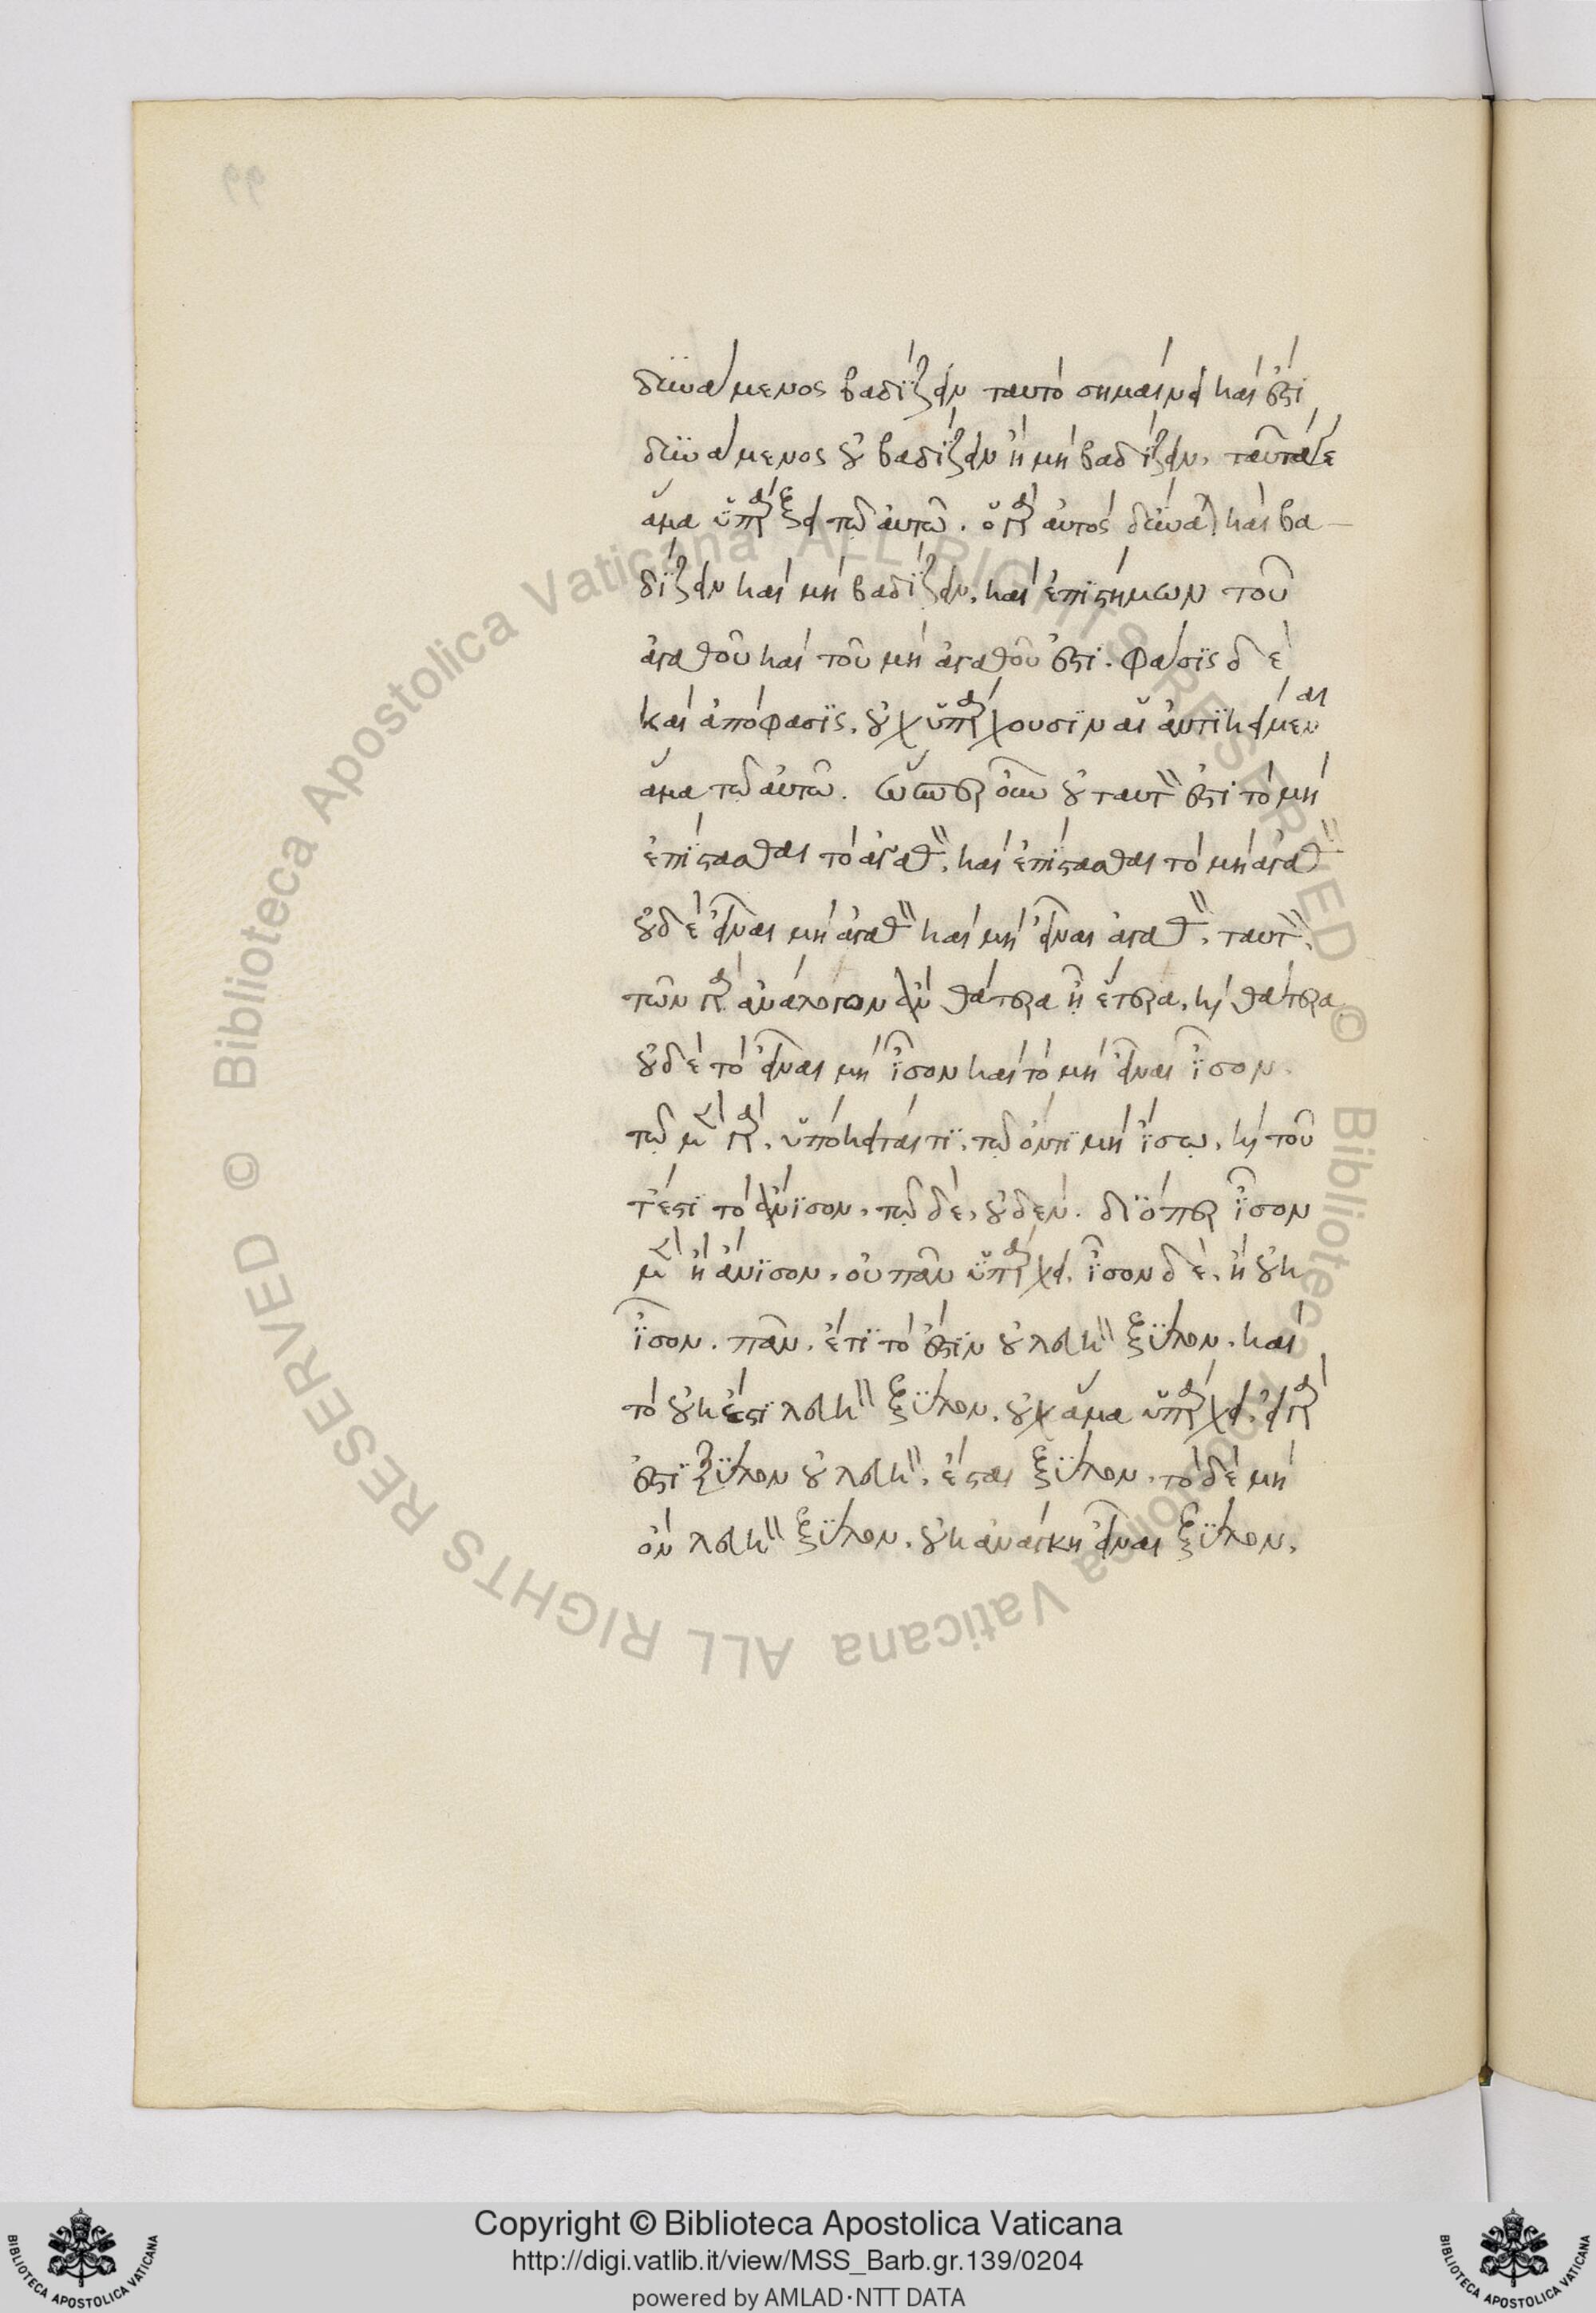 δυνάμενος βαδίζειν ταυτὸ σημαίνει καὶ ἐστὶ
δυνάμενος οὐ βαδίζειν ἢ μὴ βαδίζειν, ταῦτά γε
ἅμα ὑπάρξει τῷ αὐτῷ. ὁ γὰρ αὐτὸς δύναται καὶ βα
δίζειν καὶ μὴ βαδίζειν, καὶ ἐπιστήμων τοῦ
ἀγαθοῦ καὶ τοῦ μὴ ἀγαθοῦ ἐστι. φάσις δὲ
καὶ ἀπόφασις, οὐχ ὑπάρχουσιν αἱ ἀντικείμεναι
ἅμα τῷ αὐτῷ. ὥσπερ οὖν οὐ ταυτὸν ἐστὶ τὸ μὴ
ἐπίστασθαι τὸ ἀγαθὸν, καὶ ἐπίστασθαι τὸ μὴ ἀγαθὸν
οὐδὲ εἶναι μὴ ἀγαθὸν καὶ μὴ εἶναι ἀγαθὸν, ταυτὸν,
τῶν γὰρ ἀνάλογον ἐὰν θάτερα ᾖ ἕτερα, καὶ θάτερα.
οὐδὲ τὸ εἶναι μὴ ἶσον καὶ τὸ μὴ εἶναι ἶσον.
τῷ μὲν γὰρ, ὑπόκειταί τι, τῷ ὄντι μὴ ἴσῳ, καὶ τοῦ
τ' ἔστι τὸ ἄνισον, τῷ δὲ, οὐδέν. διόπερ ἶσον
μὲν ἢ ἄνισον, οὐ πᾶν ὑπάρχει, ἶσον δὲ, ἢ οὐκ
ἶσον. πᾶν. ἔτι τὸ ἐστὶν οὐ λευκὸν ξύλον, καὶ
τὸ οὐκ ἔστι λευκὸν ξύλον, οὐχ ἅμα ὑπάρχει, εἰ γὰρ
ἐστὶ ξύλον οὐ λευκὸν, ἔσται ξύλον, τὸ δὲ μὴ
ὂν λευκὸν ξύλον, οὐκ ἀνάγκη εἶναι ξύλον,
Copyright © Biblioteca Apostolica Vaticana
http://digi.vatlib.it/view/MSS_Barb.gr.139/0204
powered by AMLAD·NTT DATA